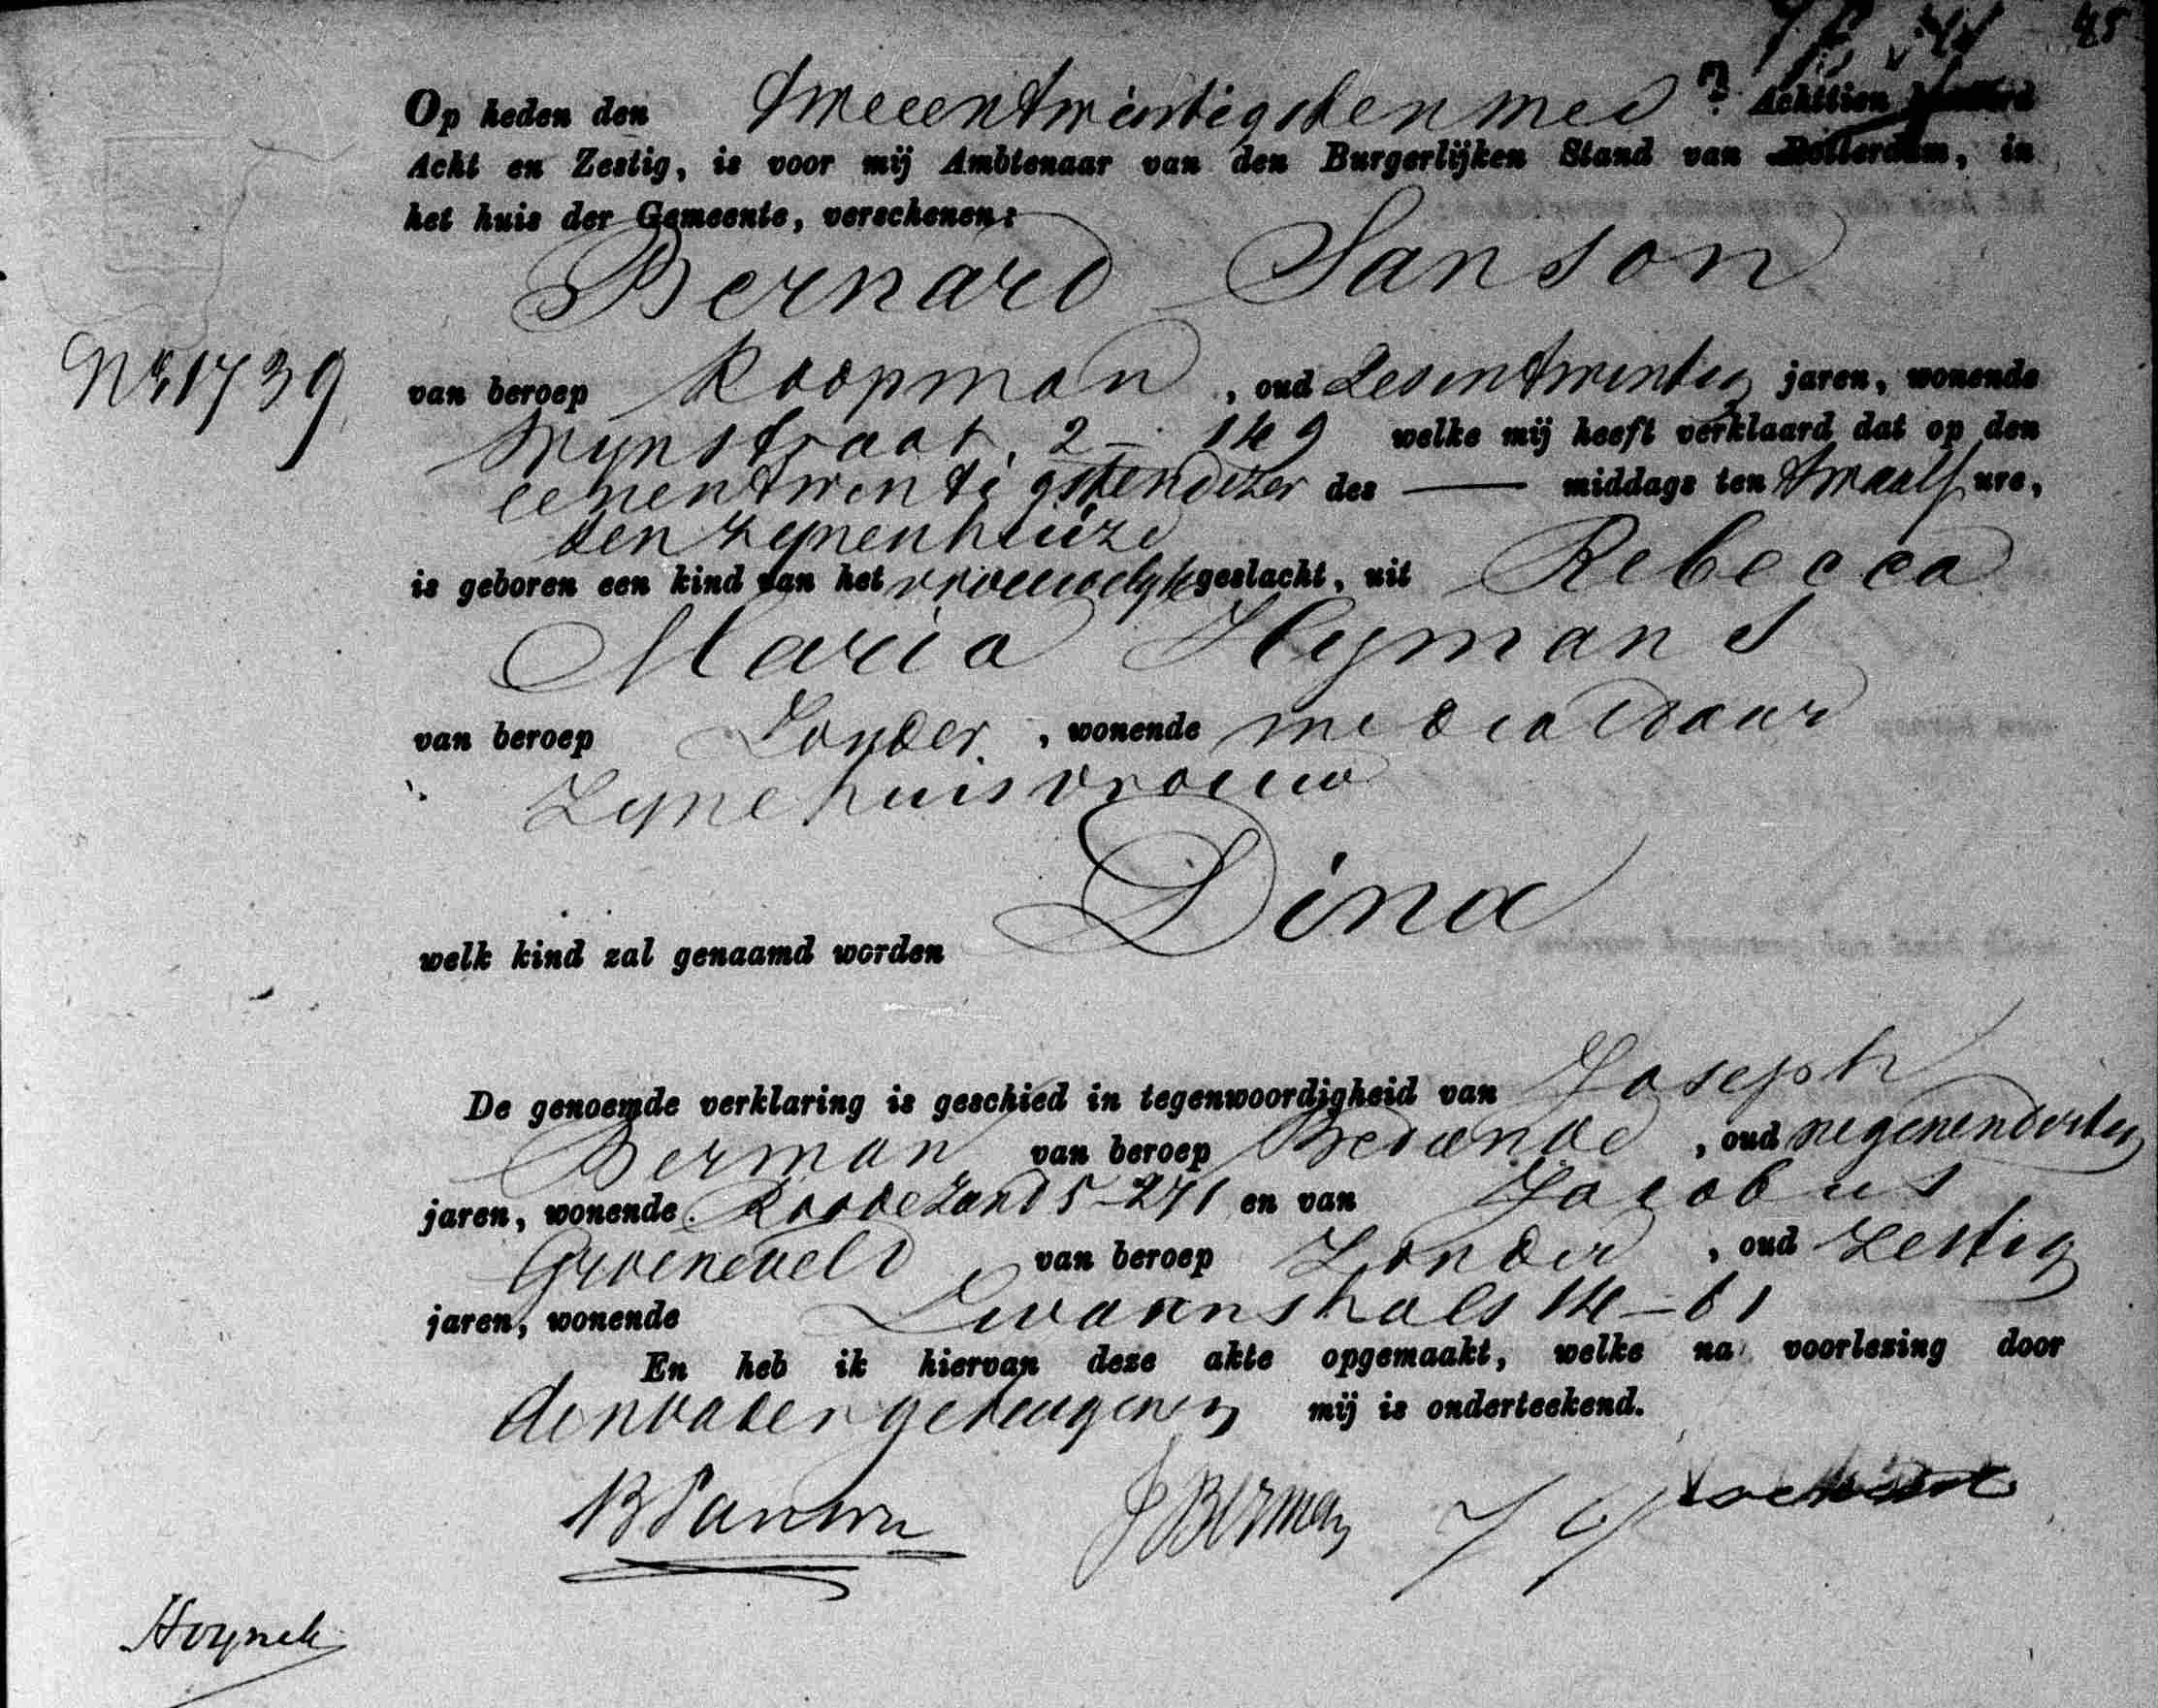 45
Op heden den tweeentwintigsten mei Achttien honderd
Acht en Zestig, is voor mij Ambtenaar van den Burgerlijken Stand van Rotterdam, in
het huis der Gemeente, verschenen:
Bernard Sanson
No 1739
van beroep Koopman, oud Zesentwintig jaren, wonende
Wijnstraat 2-149 welke mij heeft verklaard dat op den
eenentwintigsten dezer des — middags ten twaalf ure,
ten zijnen huize
is geboren een kind van het vrouwelijk geslacht, uit Rebecca
Maria Hijmans
van beroep Zonder, wonende mede aldaar
Zijne huisvrouw
Dina
welk kind zal genaamd worden
De genoemde verklaring is geschied in tegenwoordigheid van Joseph
Berman van beroep Bediende, oud negenendertig
jaren, wonende Roodezand 5-271 en van Jacobus
Groeneveld van beroep Zonder, oud Zestig
jaren, wonende Zwaanshals 14-61
En heb ik hiervan deze akte opgemaakt, welke na voorlezing door
den vader getuigen en mij is onderteekend.
B Sanson J Berman